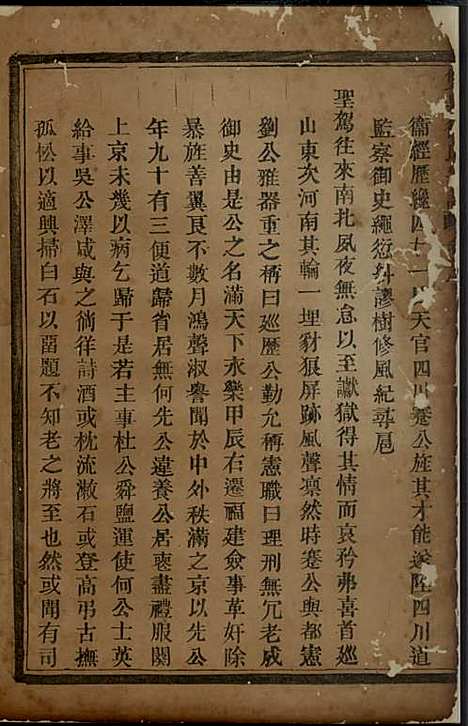 衞經歷繼四十一天官四川蹇公旌其才能遂陞四川道
監察御史繩愆糾謬樹修風紀尋扈
聖駕往來南北夙夜無怠以至讞獄得其情而哀矜弗喜首廵
山東次河南其輪一埋豺狼屏跡風聲凛然時蹇公與都憲
劉公雅器重之稱曰廵歷公勤允稱憲職曰理刑無冗老成
御史由是公之名滿天下永樂甲辰右遷福建僉事革奸除
暴旌善異良不數月鴻聲淑譽聞於中外秩滿之京以先公
年九十有三便道歸省居無何先公違養公居喪盡禮服闋
上京未幾以病乞歸于是若主事杜公舜鹽運使何公士英
給事吳公澤咸與之徜徉詩酒或枕流漱石或登高弔古撫
孤松以適興掃白石以留題不知老之將至也然或聞有司